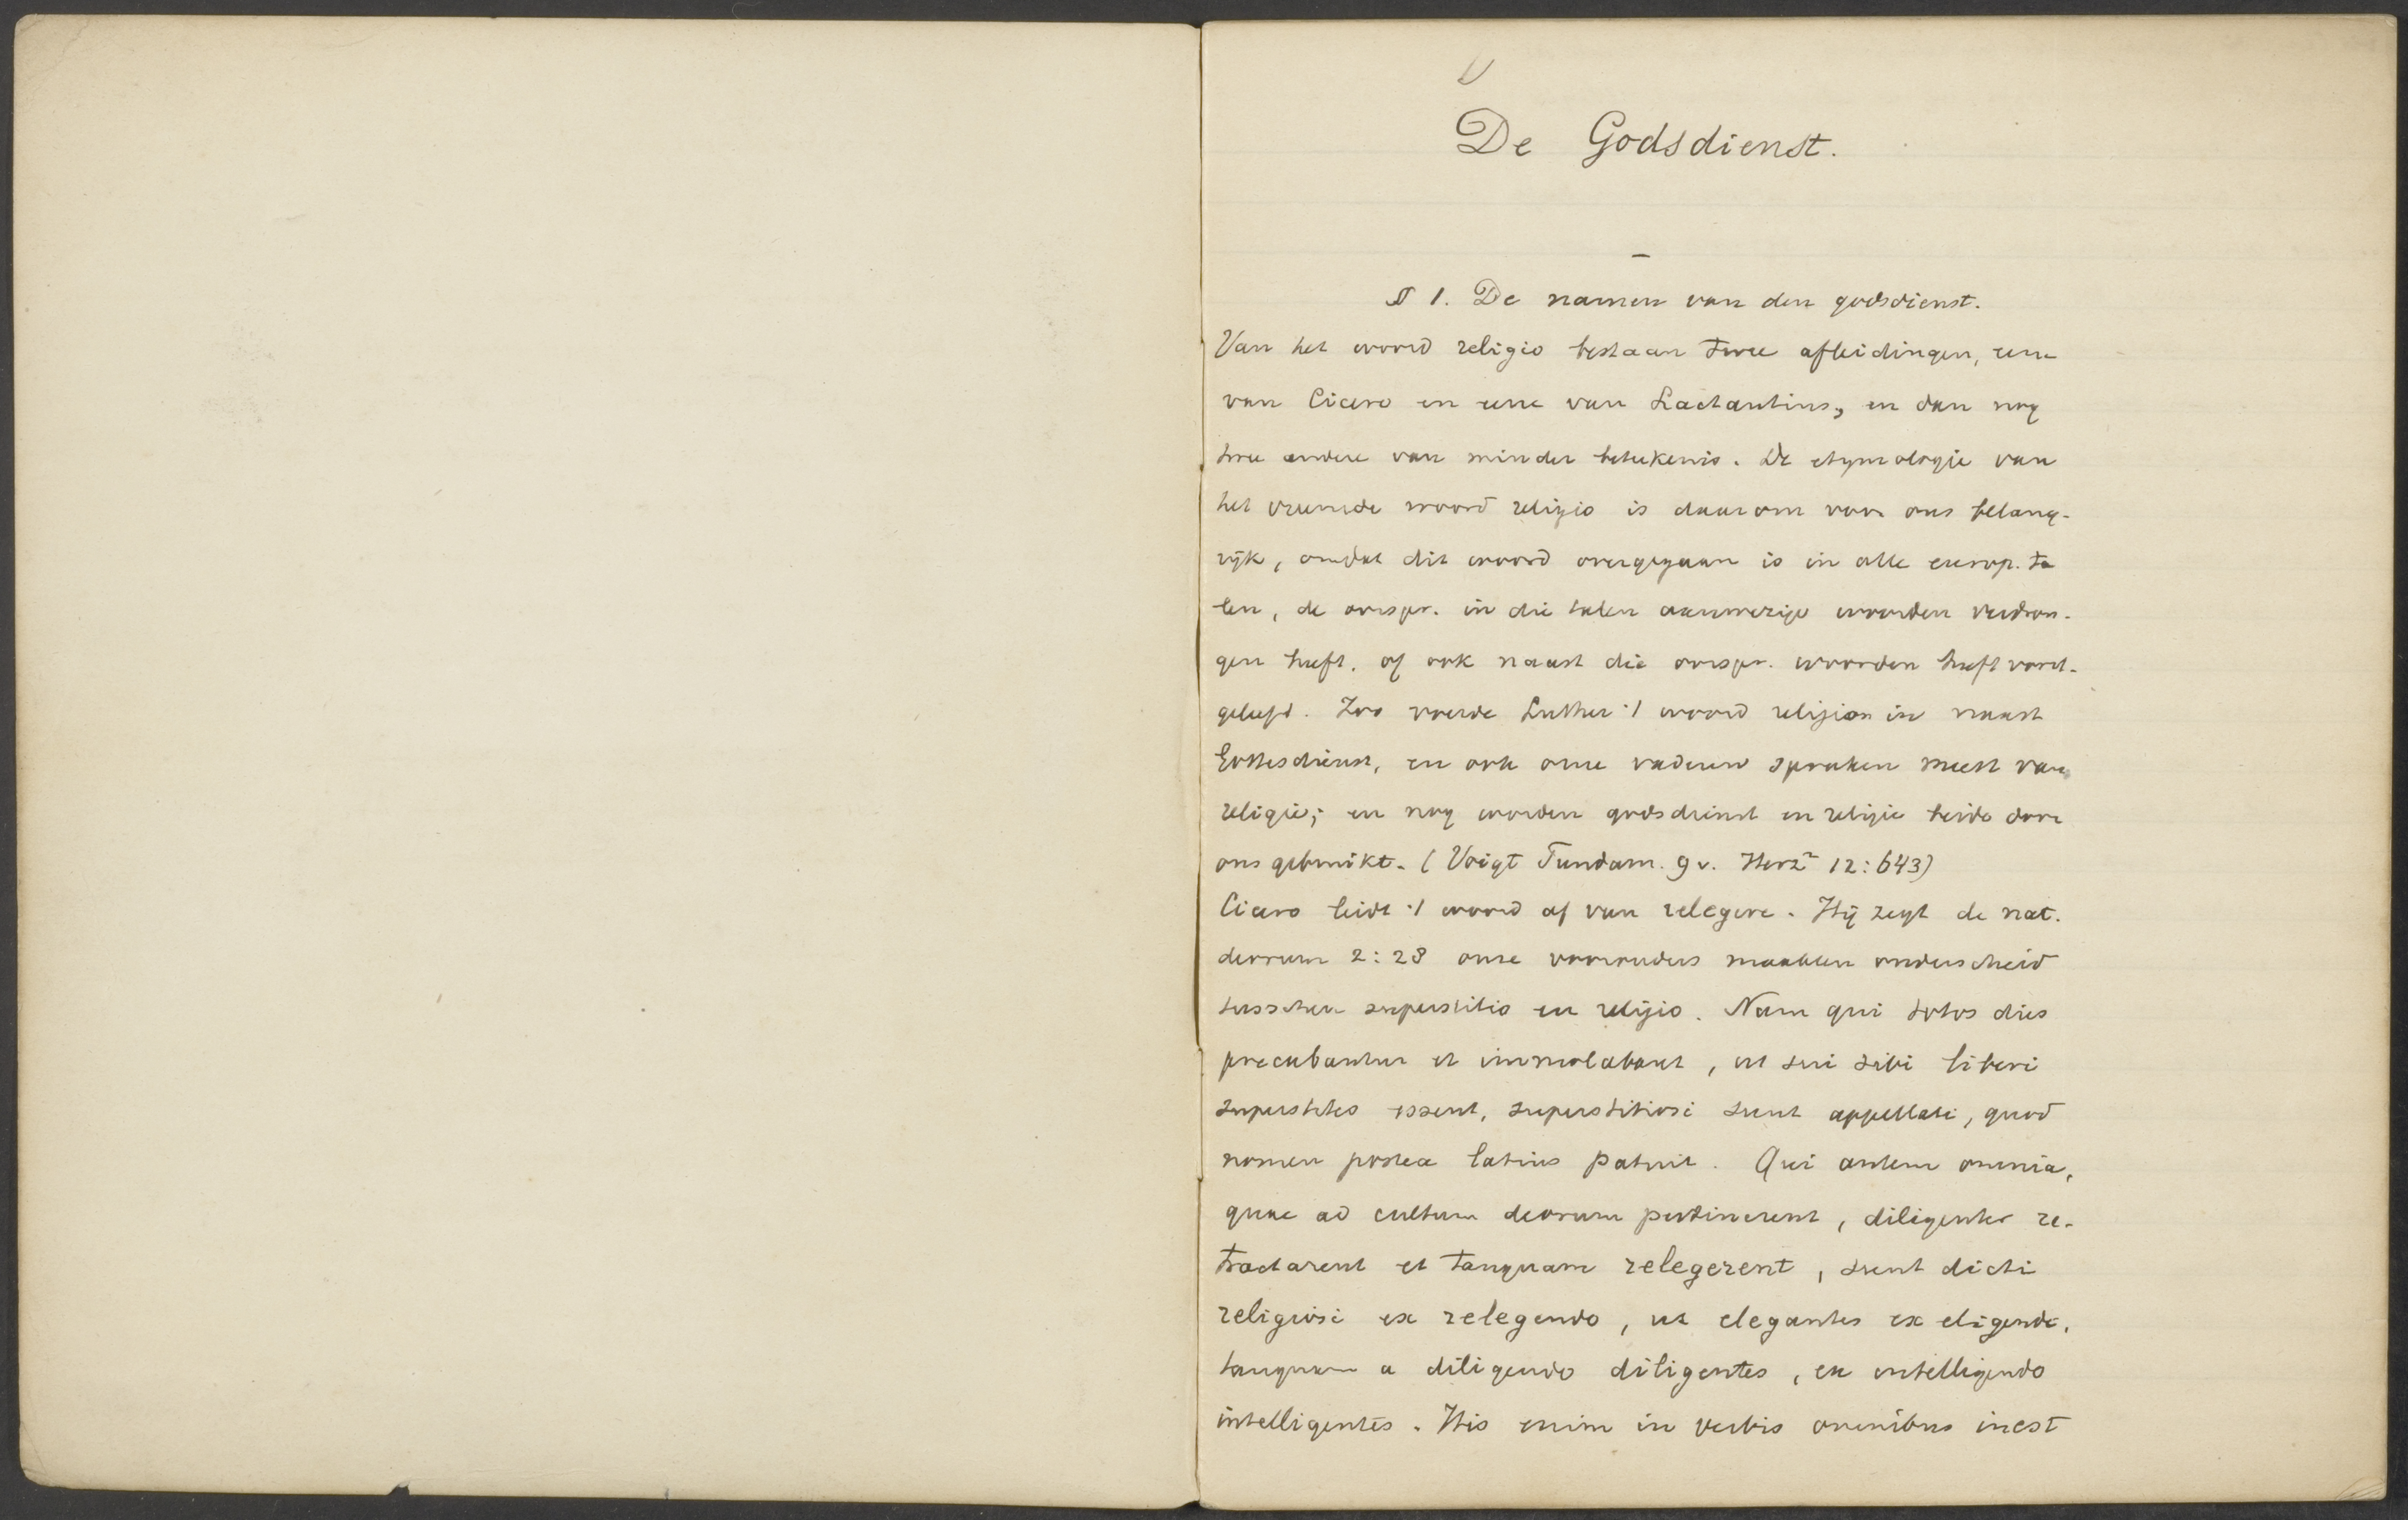 De Godsdienst.
§ 1. De namen van den godsdienst.
Van het woord religio bestaan twee afleidingen, eene
van Cicero en eene van Lactantius, en dan nog
twee andere van minder beteekenis. De etymologie van
het vreemde woord religio is daarom voor ons belang-
rijk, omdat dit woord overgegaan is in alle europ. ta
len, de oorspr. in die talen aanwezige woorden verdron-
gen heeft, of ook naast die oorspr. woorden heeft voort-
geleefd. Zoo voerde Luther 't woord religion in naast
Gottesdienst, en ook onze vaderen spraken meest van
religie; en nog worden godsdienst en religie beide door
ons gebruikt. (Voigt Fundam. 9 v. Herz² 12:643)
Cicero leidt 't woord af van relegere. Hij zegt de nat.
deorum 2:28 onze voorouders maakten onderscheid
tusschen superstitio en religio. Nam qui totos dies
precabantur et immolabant, ut sui sibi liberi
superstites essent, superstitiosi sunt appellati, quod
nomen postea latius patuit. Qui autem omnia,
quae ad cultum deorum pertinerent, diligenter re-
tractarent et tanquam relegerent, sunt dicti
religiosi ex relegendo, ut elegantes ex eligendo,
tanquam a diligendo diligentes, ex intelligendo
intelligentes. His enim in verbis omnibus inest